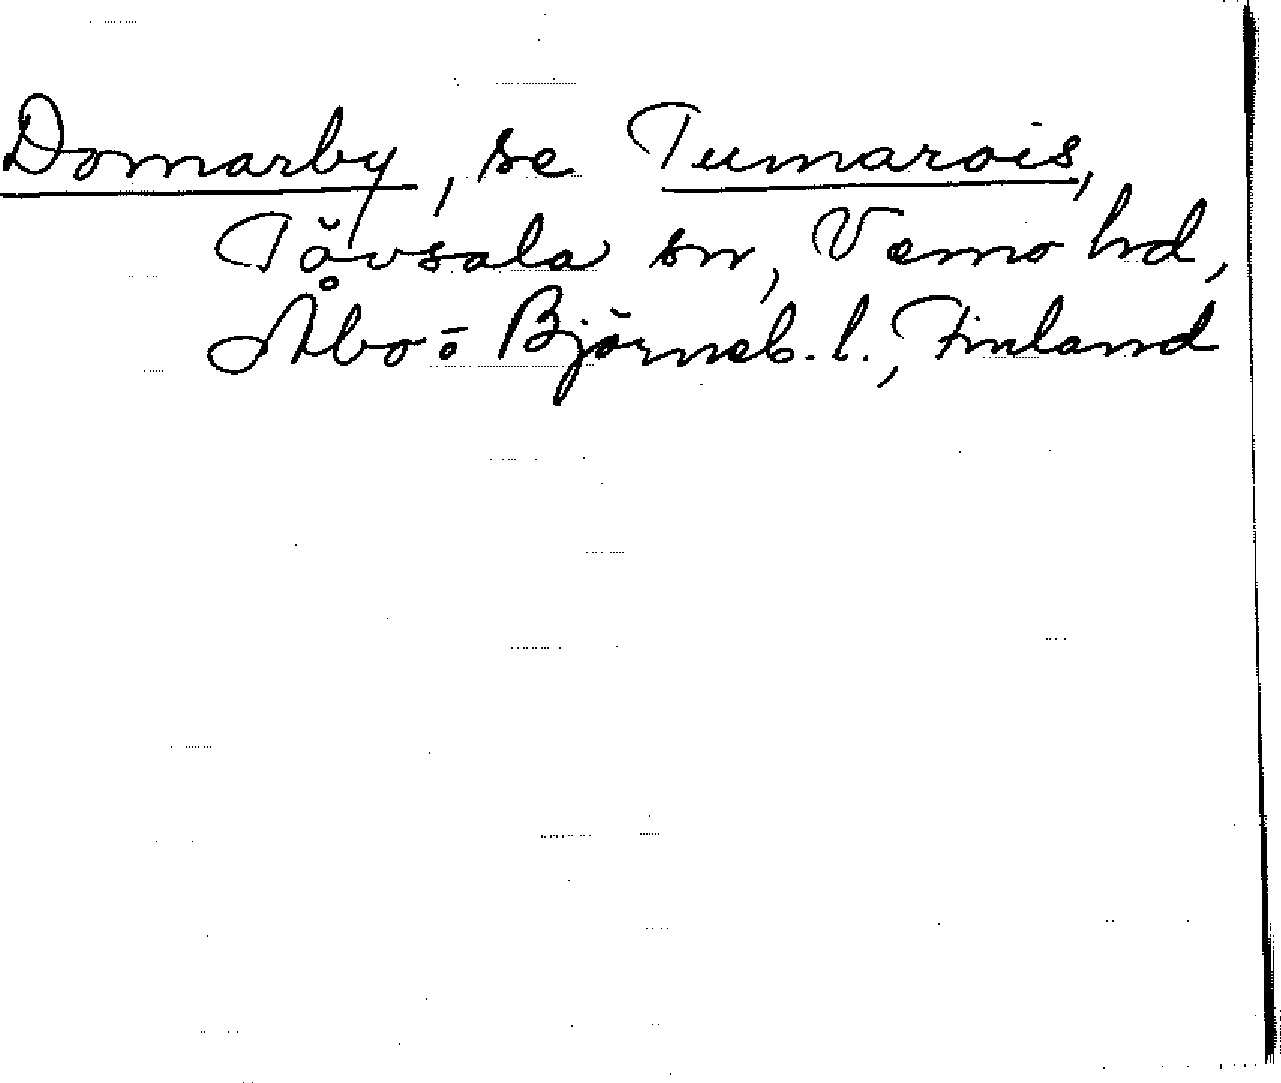 Domarby, se Tumarois,
Tövsala sn, Vemo hd,
Åbo o Björneb. l., Finland